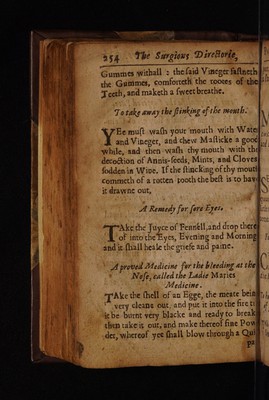 254 The Surgions Directorie,
Gummes withall : the said Vineger fastneth
the Gummes, comforteth the rootes of the
Teeth, and maketh a sweet breathe.
To take away the stinking of the mouth.
YEe must wash your mouth with Wate
and Vineger, and chew Masticke a good
while, and then wash thy mouth with the
decoction of Annis-seeds, Mints, and Cloves
sodden in Wine. If the stinking of thy mout
commeth of a rotten tooth the best is to hav
it drawne out,
A Remedy for sore Eyes.
TAke the Joyce of Fennell, and drop there
of into the Eyes, Evening and Morning
and it shall heale the griefe and paine.
A proved Medicine for the bleeding at the
Nose, called the Ladie Maries
Medicine.
TAke the shell of an Egge, the meate bein
very cleane out, and put it into the fire ti
it be burnt very blacke and ready to break
then take it out, and make thereof fine Pow
der, whereof yet shall blow through a Qui